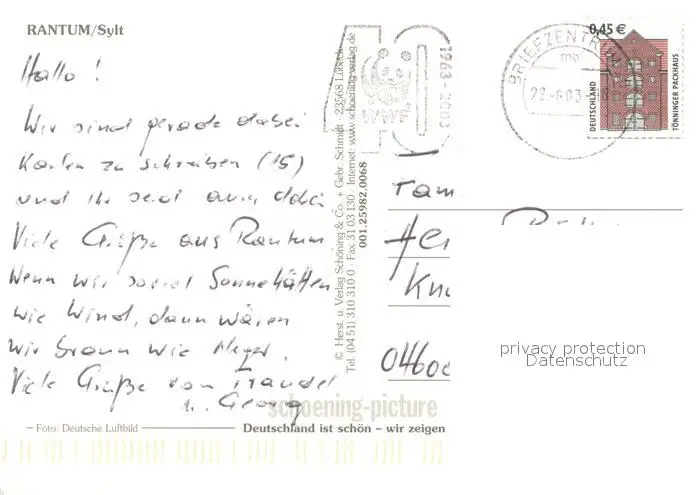 RANTUM/Sylt
Hallo!
Wir sind gerade dabei
Karten zu schreiben (15)
und Ihr seid auch dabei
Viele Grüße aus Rantum.
Wenn wir soviel Sonne hätten
wie Wind, dann wären
wir braun wie Neger.
Viele Grüße von Traudel
u. Georg
Foto: Deutsche Luftbild
Deutschland ist schön – wir zeigen
© Herst. u. Verlag Schöning & Co. + Gebr. Schmidt · 23568 Lübeck
Tel. (04 51) 310 310 0 · Fax 31 03 130 · Internet: www.schoening-verlag.de
001.25982.0068
schoening-picture
40
WWF
1963-2003
BRIEFZENTR
mb
22.-6.03
0,45 €
DEUTSCHLAND
TÖNNINGER PACKHAUS
Fam
04600
privacy protection
Datenschutz